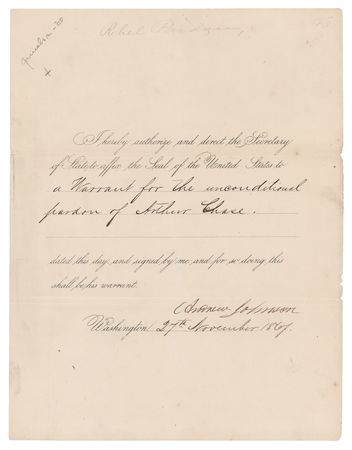 Rebel Pardon,
I hereby authorize and direct the Secretary
of State to affix the Seal of the United States to
a Warrant for the unconditional
pardon of Arthur Chase.
dated this day, and signed by me, and for so doing this
shall be his warrant.
Andrew Johnson
Washington, 27th November 1867.